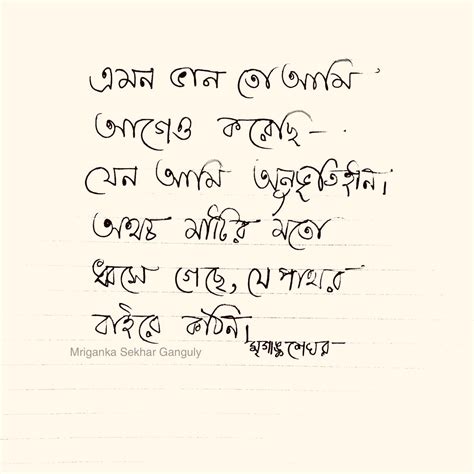 এমন ভান তো আমি
আগেও করেছি -
যেন আমি অনুভূতিহীন।
অথচ মাটির মতো
ধ্বসে গেছে, যে পাথর
বাইরে কঠিন।
মৃগাঙ্কশেখর
Mriganka Sekhar Ganguly